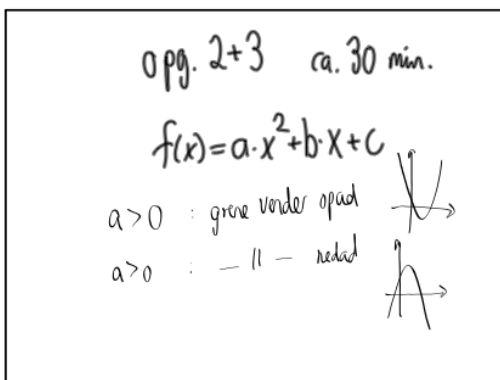 opg. 2+3 ca. 30 min.
f(x)=a·x²+b·x+c
a>0 : grene vender opad
a>0 : — 〃 — nedad